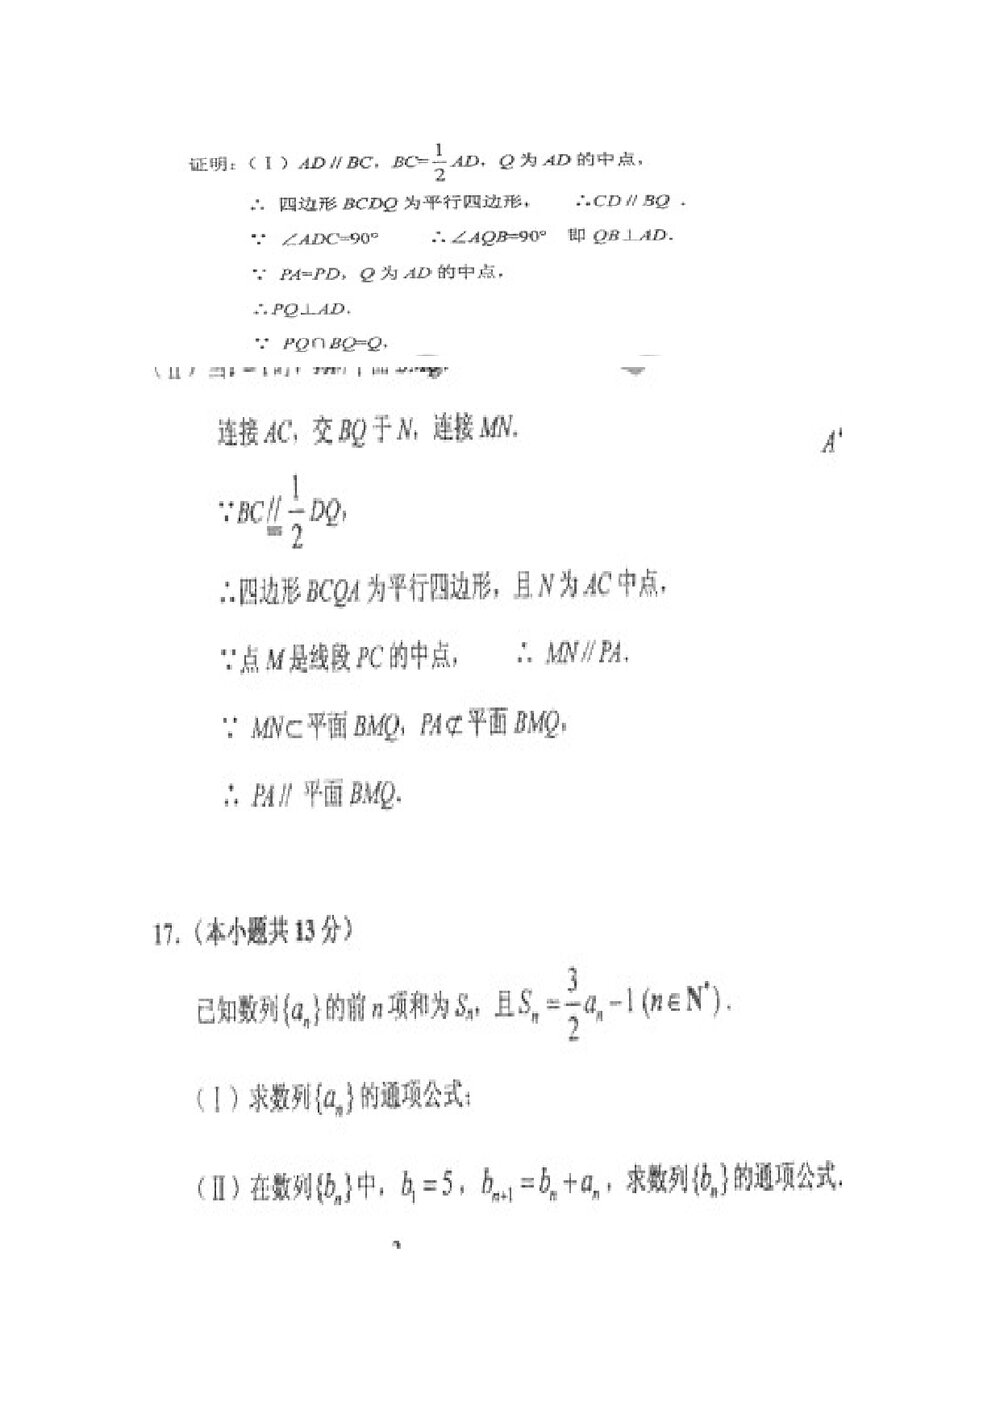 证明:(Ⅰ)AD // BC，BC=1/2 AD，Q 为 AD 的中点，
∴ 四边形 BCDQ 为平行四边形， ∴CD // BQ .
∵ ∠ADC=90° ∴∠AQB=90° 即 QB⊥AD.
∵ PA=PD，Q 为 AD 的中点，
∴PQ⊥AD.
∵ PQ∩BQ=Q，
(Ⅱ)
连接 AC，交 BQ 于 N，连接 MN.
A
∵BC // 1/2 DQ，
∴四边形 BCQA 为平行四边形，且 N 为 AC 中点，
∵点 M 是线段 PC 的中点， ∴ MN // PA.
∵ MN⊂平面 BMQ，PA⊄平面 BMQ，
∴ PA // 平面 BMQ.
17.（本小题共 13 分）
已知数列{aₙ}的前 n 项和为 Sₙ，且 Sₙ = 3/2 aₙ − 1 (n∈N*) .
(Ⅰ) 求数列{aₙ}的通项公式;
(Ⅱ) 在数列{bₙ}中，b₁ = 5，bₙ₊₁ = bₙ + aₙ，求数列{bₙ}的通项公式.